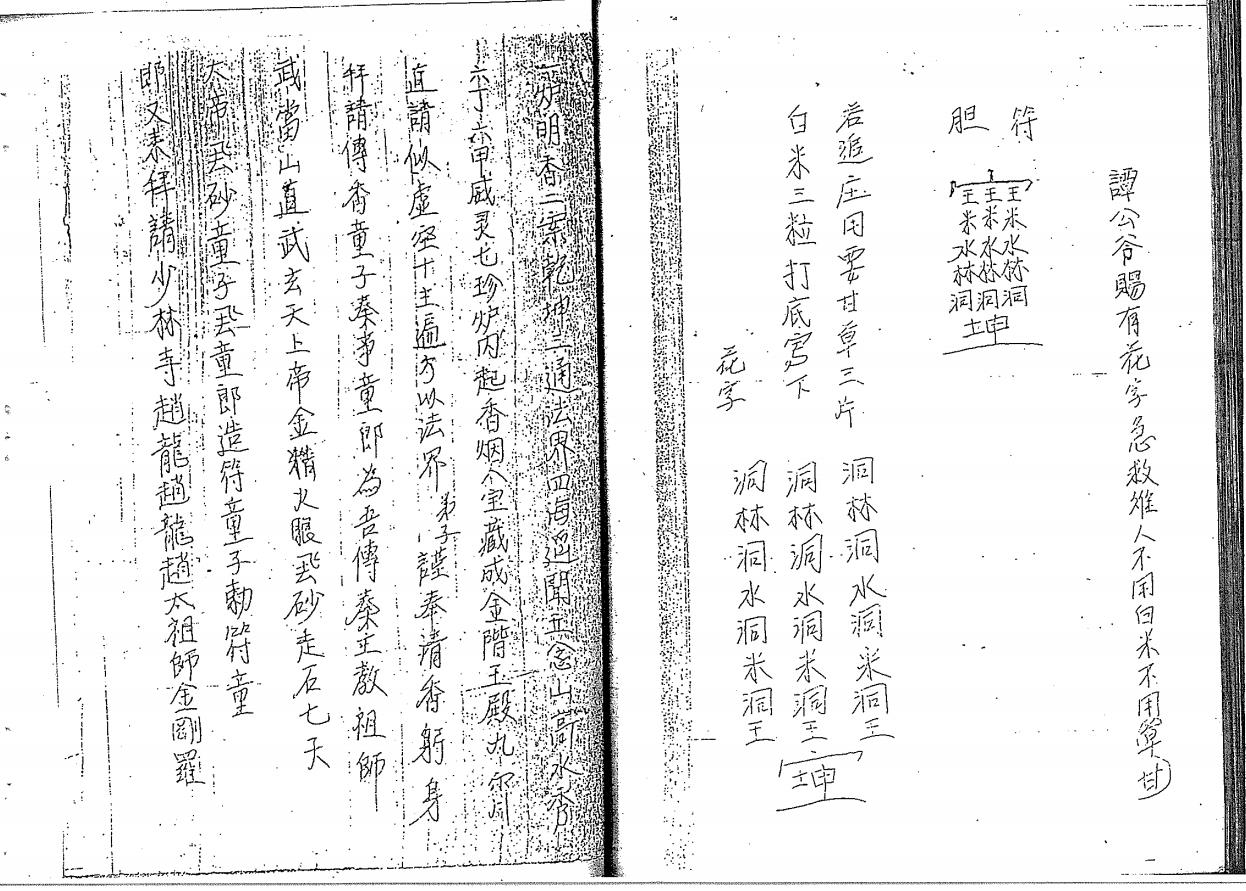 譚公爷賜有花字急救难人不用白米不用草甘
符
胆
王米水林洞
王米水林洞
王米水林洞
坤
若追庄田要甘草三片
白米三粒打底宮下
花字
洞林洞水洞米洞王
洞林洞水洞米洞王
洞林洞水洞米洞王
坤
一炉明香二案乾坤三通法界四海遥聞五念山高水秀
六丁六甲威灵七珍炉内起香烟八宝藏成金階王殿九
直請似虛空十主遍方以法界弟子謹奉清香躬身
拜請傳香童子奏事童郎為吾傳奏正教祖師
武當山直武玄天上帝金精火眼飛砂走石七天
大帝飛砂童子飛童郎造符童子勅符童
郎又奉拜請少林寺趙龍趙龍趙太祖師金剛羅